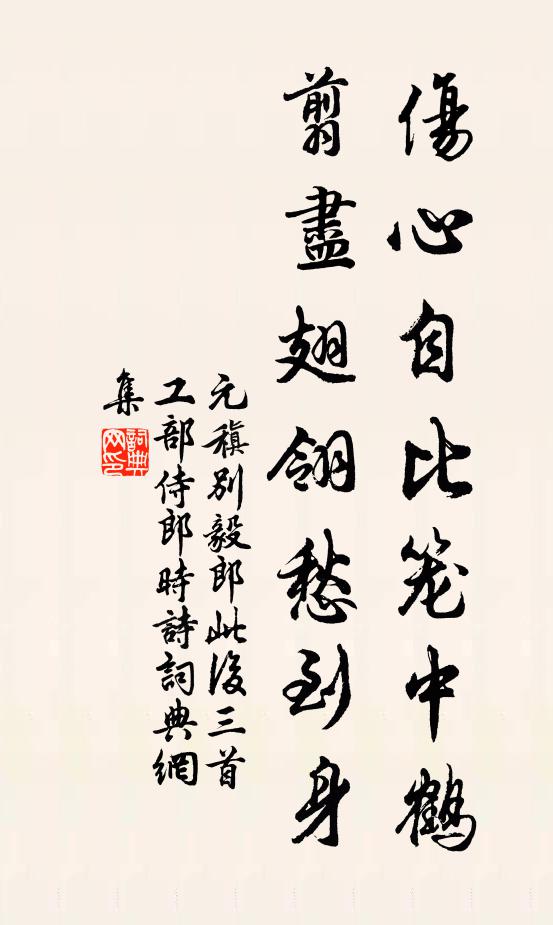 傷心自比笼中鶴
翦盡翅翎愁到身
元稹别毅郎此後三首
工部侍郎時詩詞典網
集
詞典
网印